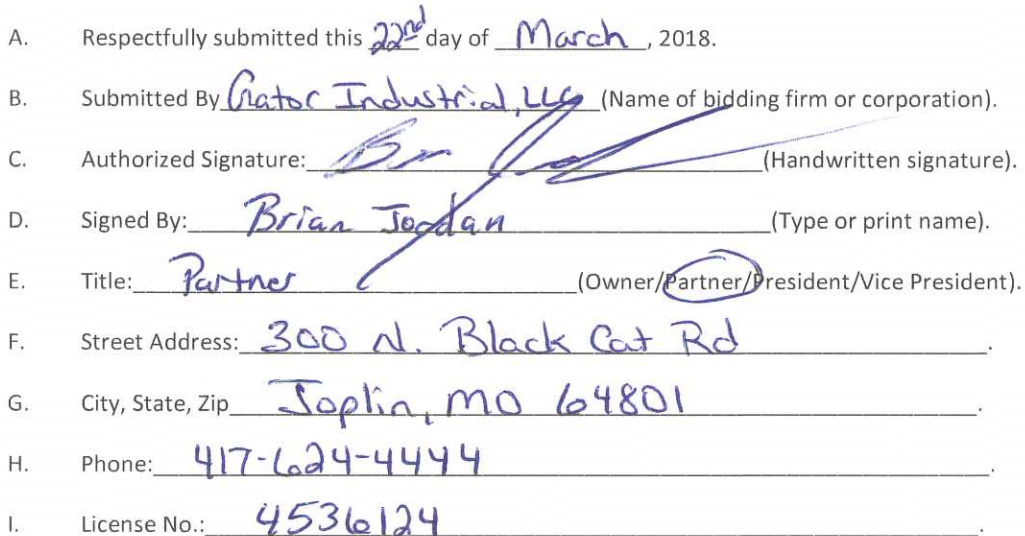 A. Respectfully submitted this 22nd day of March, 2018.
B. Submitted By Gator Industrial, LLC (Name of bidding firm or corporation).
C. Authorized Signature: (Handwritten signature).
D. Signed By: Brian Jordan (Type or print name).
E. Title: Partner (Owner/Partner/President/Vice President).
F. Street Address: 300 N. Black Cat Rd.
G. City, State, Zip Joplin, MO 64801.
H. Phone: 417-624-4444.
I. License No.: 4536124.